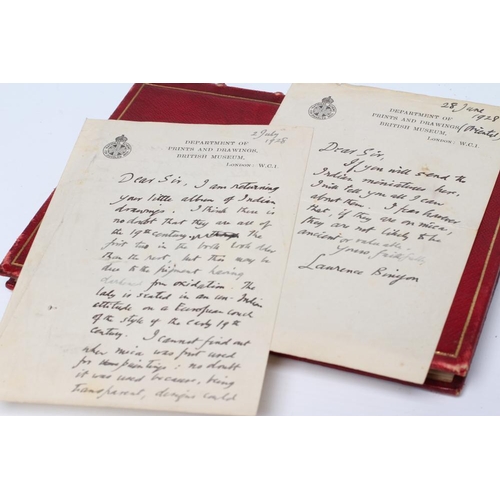 2 July
1928
DEPARTMENT OF
PRINTS AND DRAWINGS,
BRITISH MUSEUM,
LONDON: W.C.1.
Dear Sir, I am returning
your little album of Indian
drawings. I think there is
no doubt that they are all of
the 19th century. The
first two in the book look older
than the rest, but this may be
due to the pigment having
darkened from oxidation. The
lady is seated in an un-Indian
attitude on a European couch
of the style of the early 19th
century. I cannot find out
when mica was first used
for paintings; no doubt
it was used because, being
transparent, designs could
28 June
1928
DEPARTMENT OF
PRINTS AND DRAWINGS (Oriental)
BRITISH MUSEUM,
LONDON: W.C.1.
Dear Sir,
If you will send the
Indian miniatures here,
I will tell you all I can
about them. I fear however
that, if they are on mica,
they are not likely to be
ancient or valuable.
Yours faithfully
Laurence Binyon